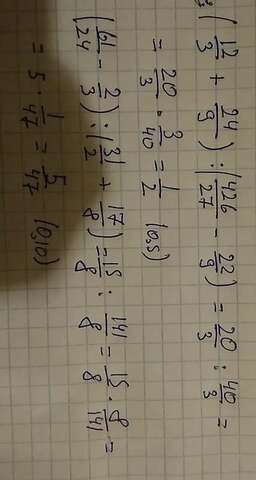 (12/3 + 24/9) : (426/27 - 22/9) = 20/3 : 40/3 =
= 20/3 · 3/40 = 1/2 (0,5)
(61/24 - 2/3) : (31/2 + 17/8) = 15/8 : 141/8 = 15/8 · 8/141 =
= 5 · 1/47 = 5/47 (0,10)